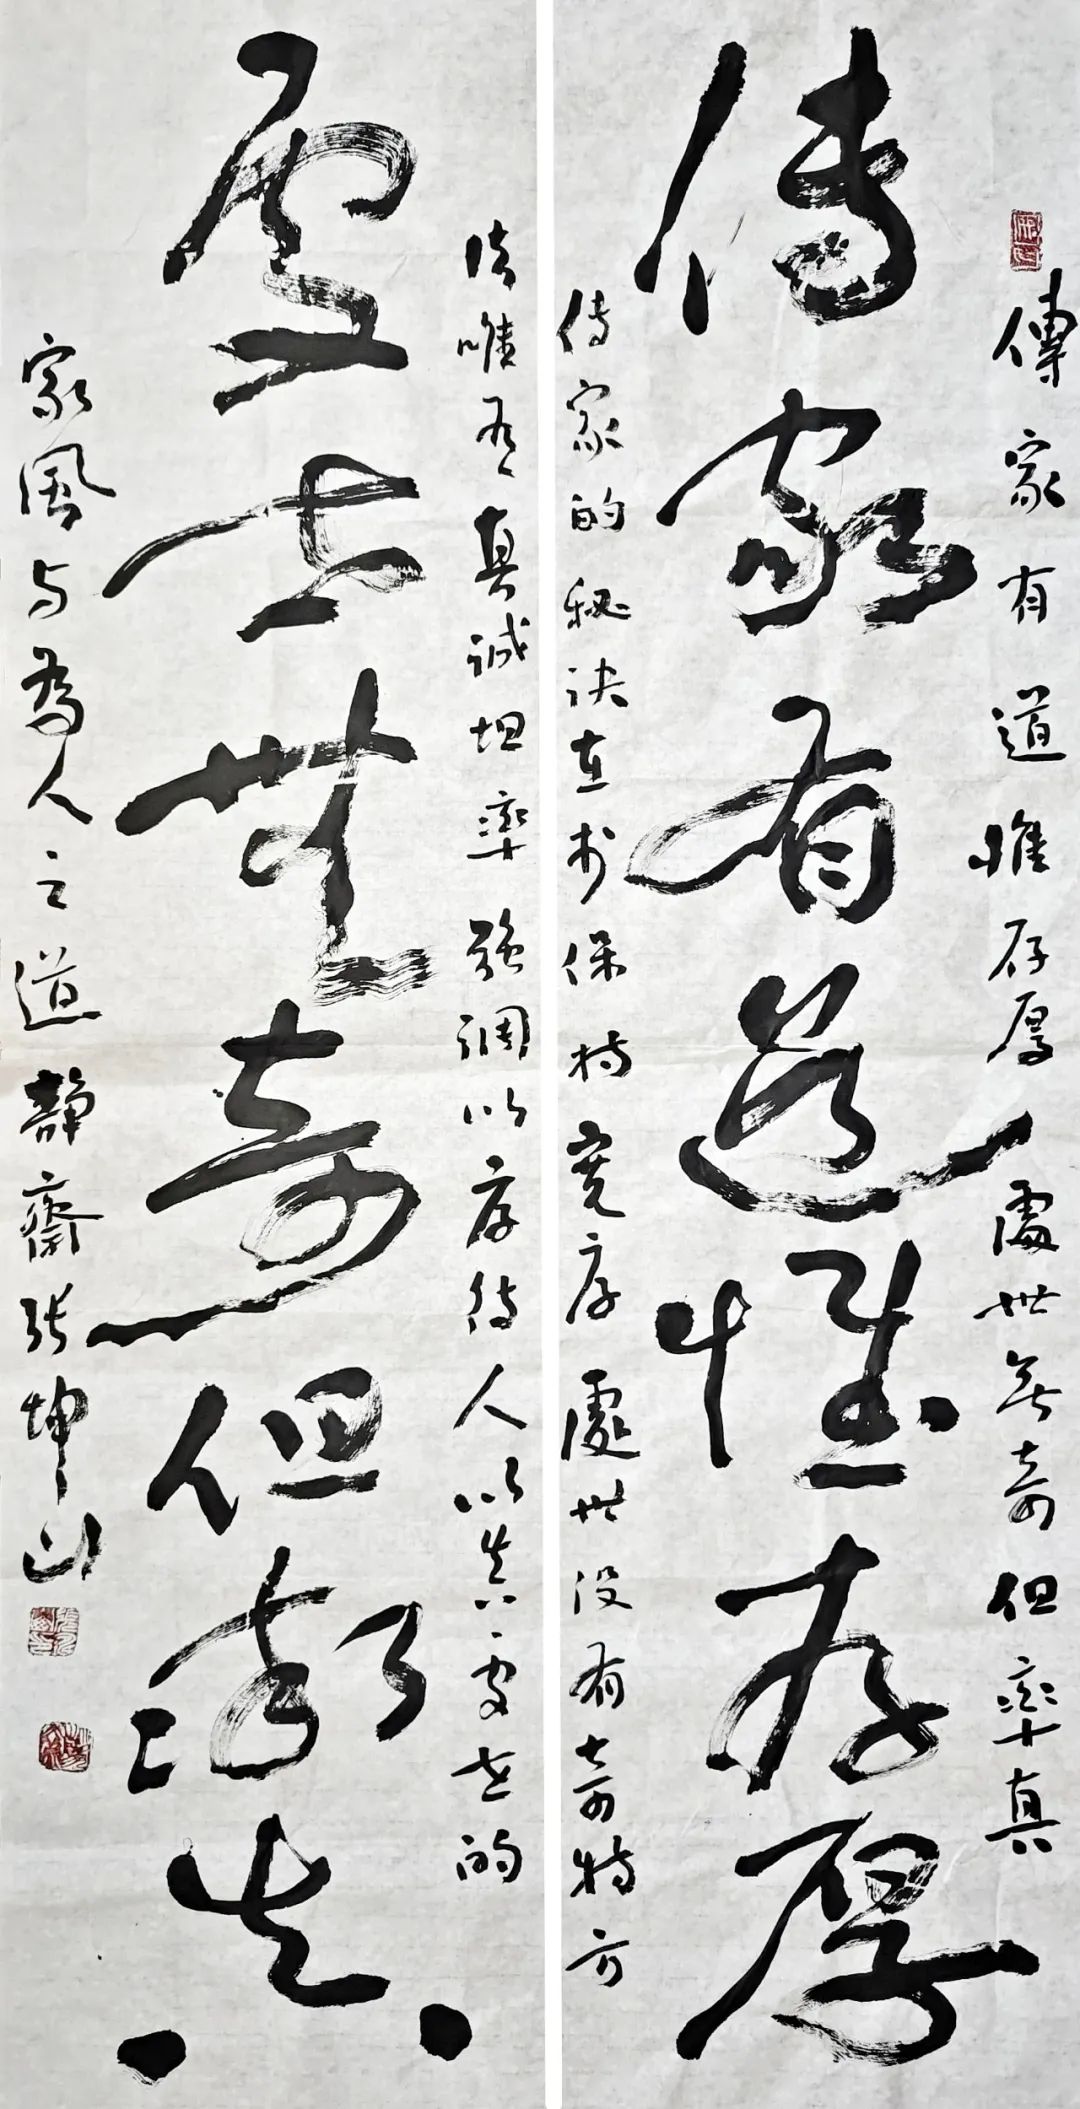 傳家有道惟存厚處世无奇但率真
傳家有道惟存厚
传家的秘诀在于保持宽厚處世没有奇特方
法唯有真诚坦率强调以厚待人以真处世的
處世無奇但率真
家風与為人之道静齋张坤山